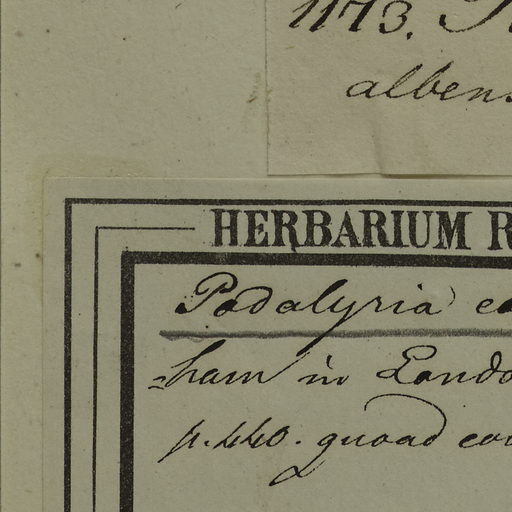 1173.
albens
HERBARIUM R
Podalyria
ham in Londo
p. 440. quoad